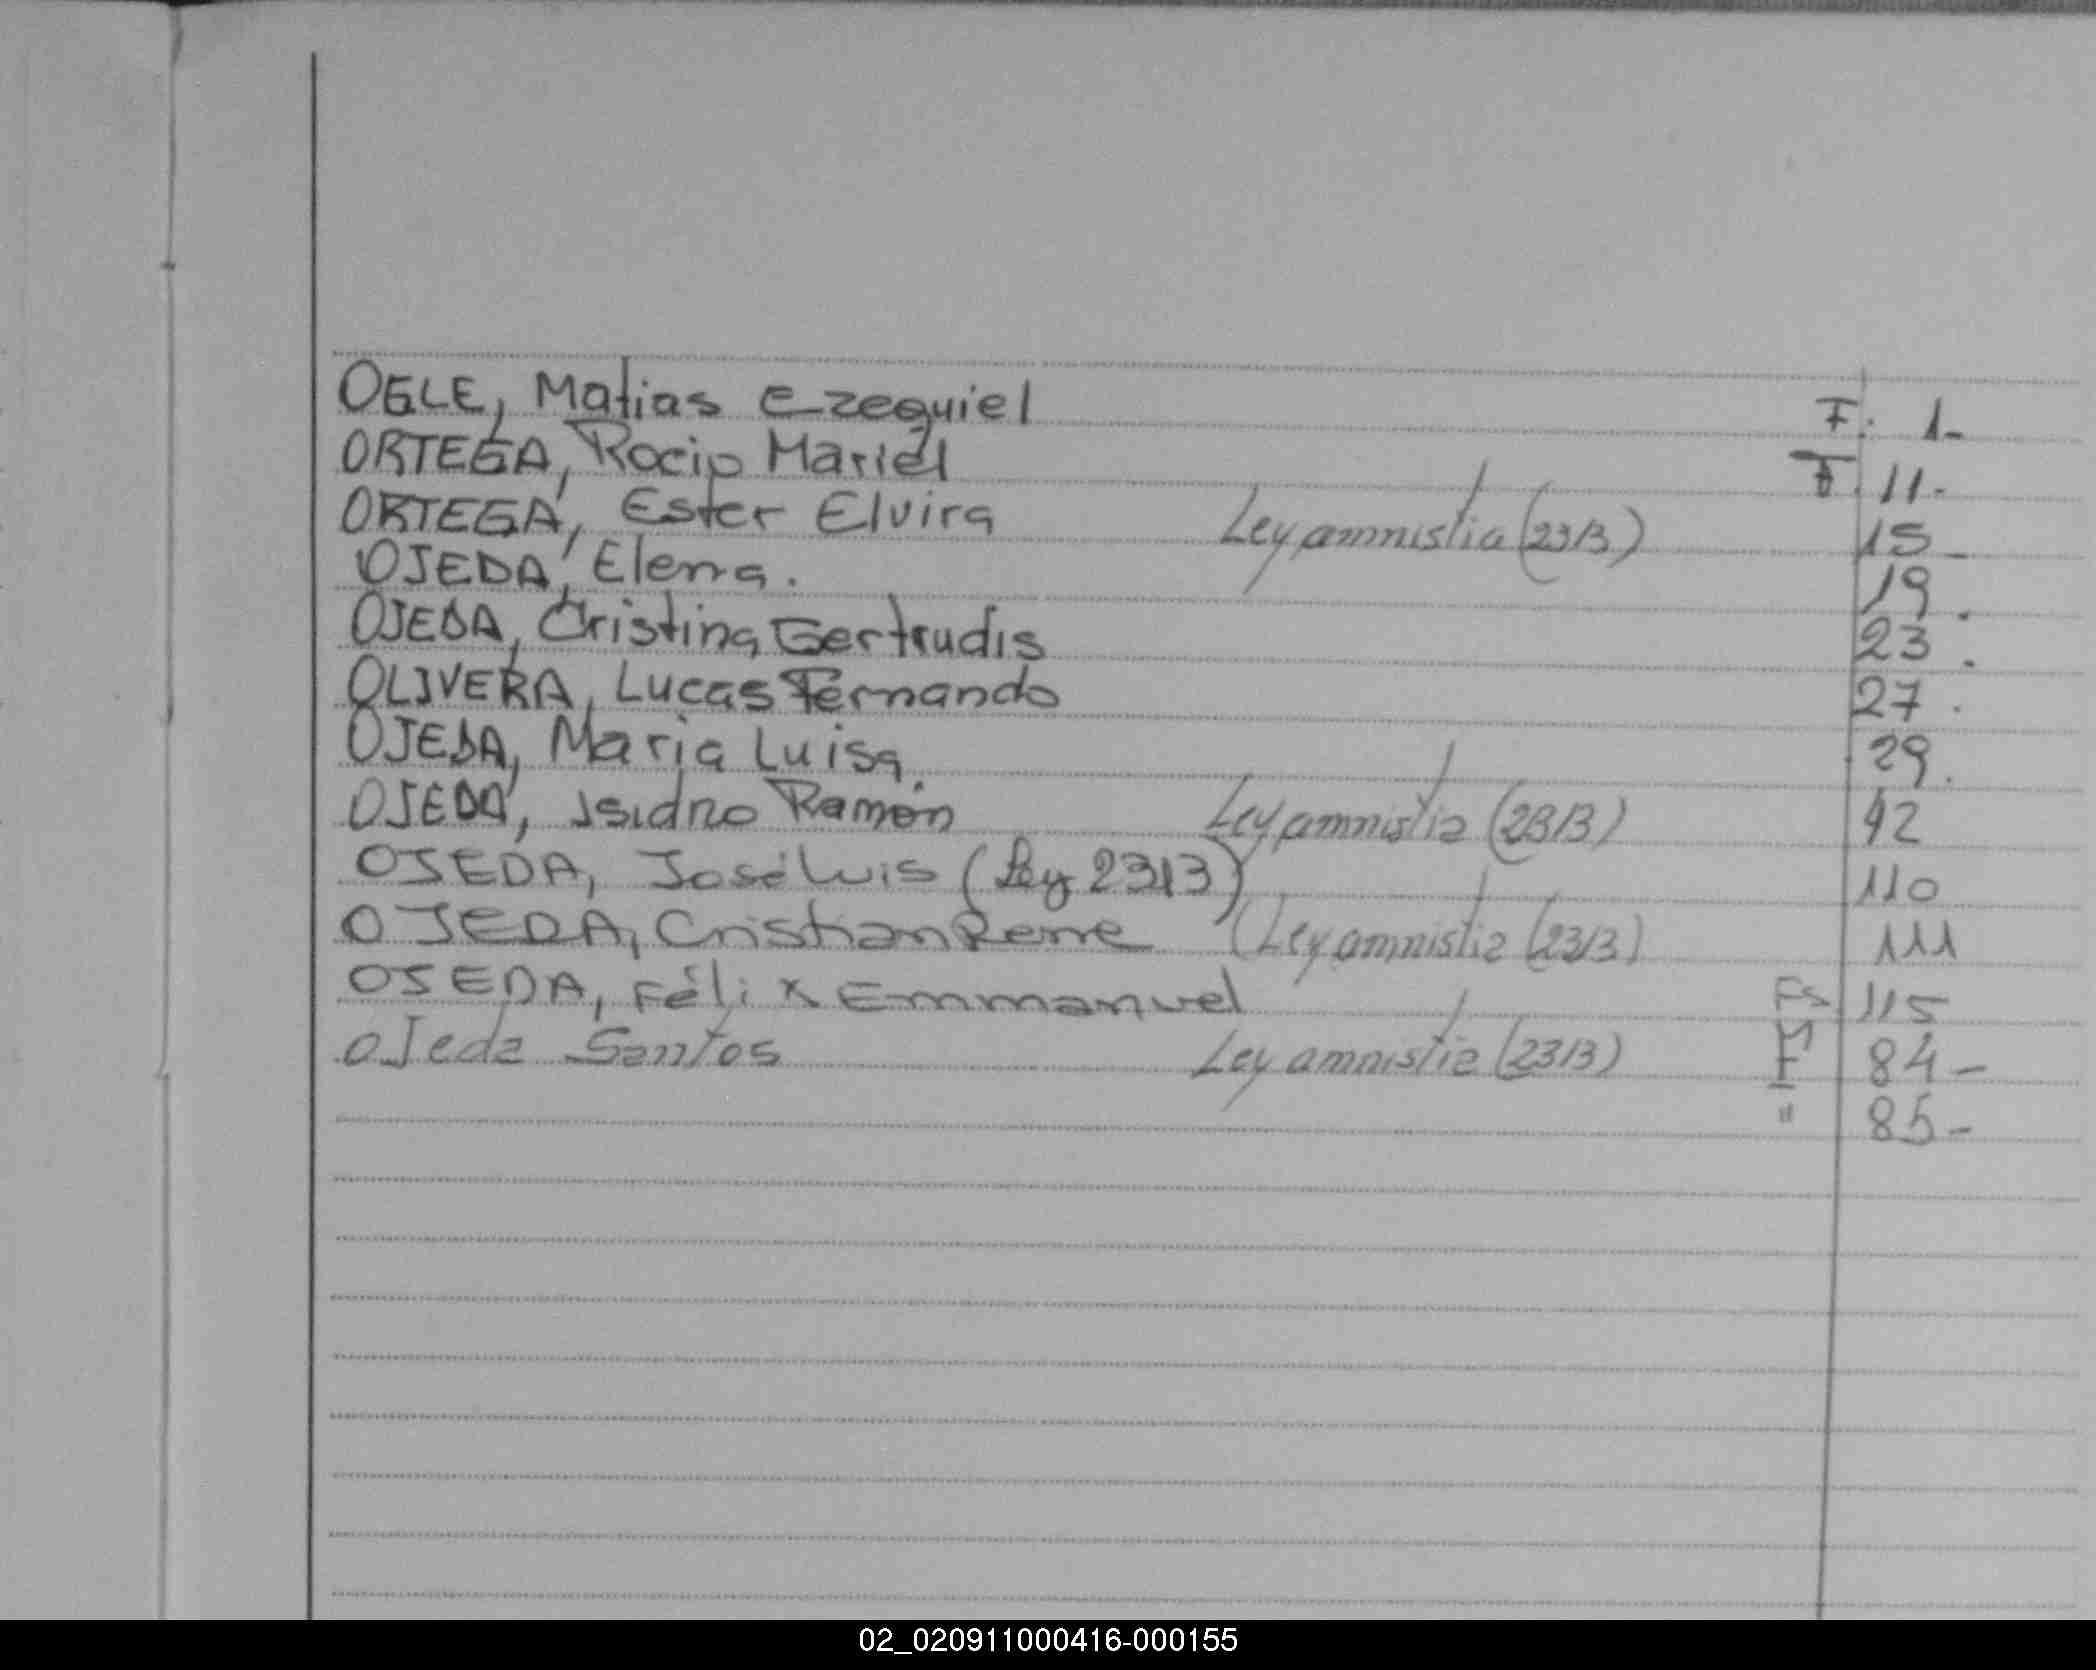 OGLE, Matias Ezequiel F. 1-
ORTEGA, Rocio Mariel F. 11.
ORTEGA, Ester Elvira Ley amnistia (2313) 15-
OJEDA, Elena. 19.
OJEDA, Cristina Gertrudis 23.
OLIVERA, Lucas Fernando 27.
OJEDA, Maria Luisa. 29.
OJEDA, Isidro Ramón Ley amnistia (2313) 42
OJEDA, José Luis (Ley 2313) 110
OJEDA, Cristian Rene (Ley amnistia (2313) 111
OJEDA, Félix Emmanuel Fs 115
OJeda Santos Ley amnistia (2313) F 84-
" 85-
02_020911000416-000155